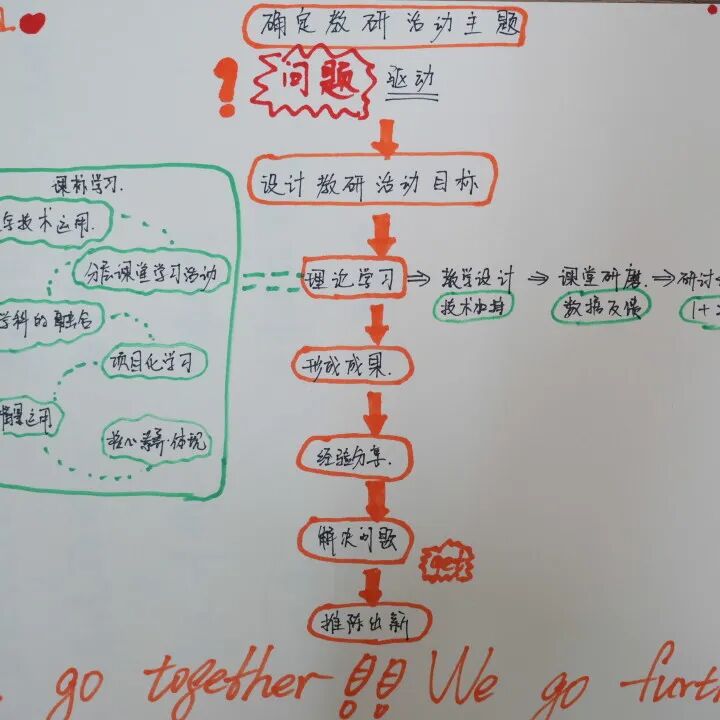 确定教研活动主题
问题 驱动
设计教研活动目标
课标学习.
技术运用.
分层课堂学习活动
学科的融合
项目化学习
运用
核心素养·体现
理论学习 ⇒ 教学设计 ⇒ 课堂研磨. ⇒ 研讨
技术加持 数据反馈 1+
形成成果.
经验分享.
解决问题
推陈出新
go together!! We go furth